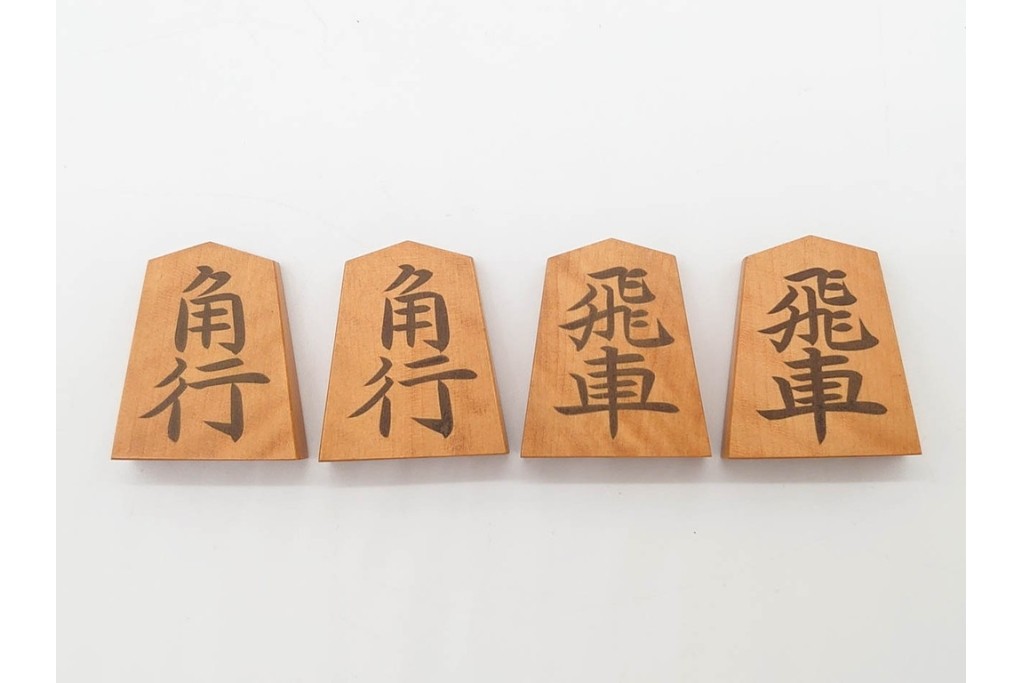 角行
角行
飛車
飛車